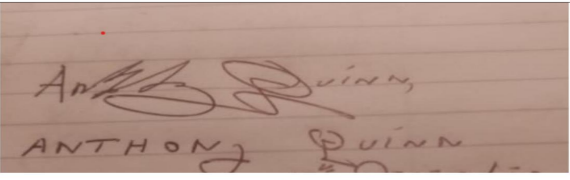 Anthony Quinn,
ANTHONY QUINN